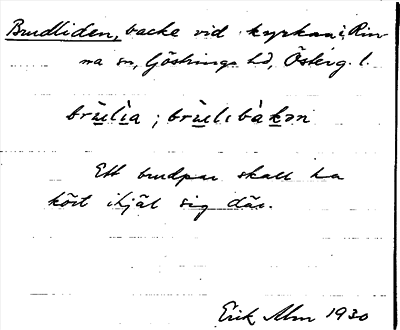 Brudliden, backe vid kyrkan i Rin-
na sn, Göstrings hd, Österg. l.
brùlìa ; brùlıbàkən
Ett brudpar skall ha
kört ihjäl sig där.
Erik Alm 1930